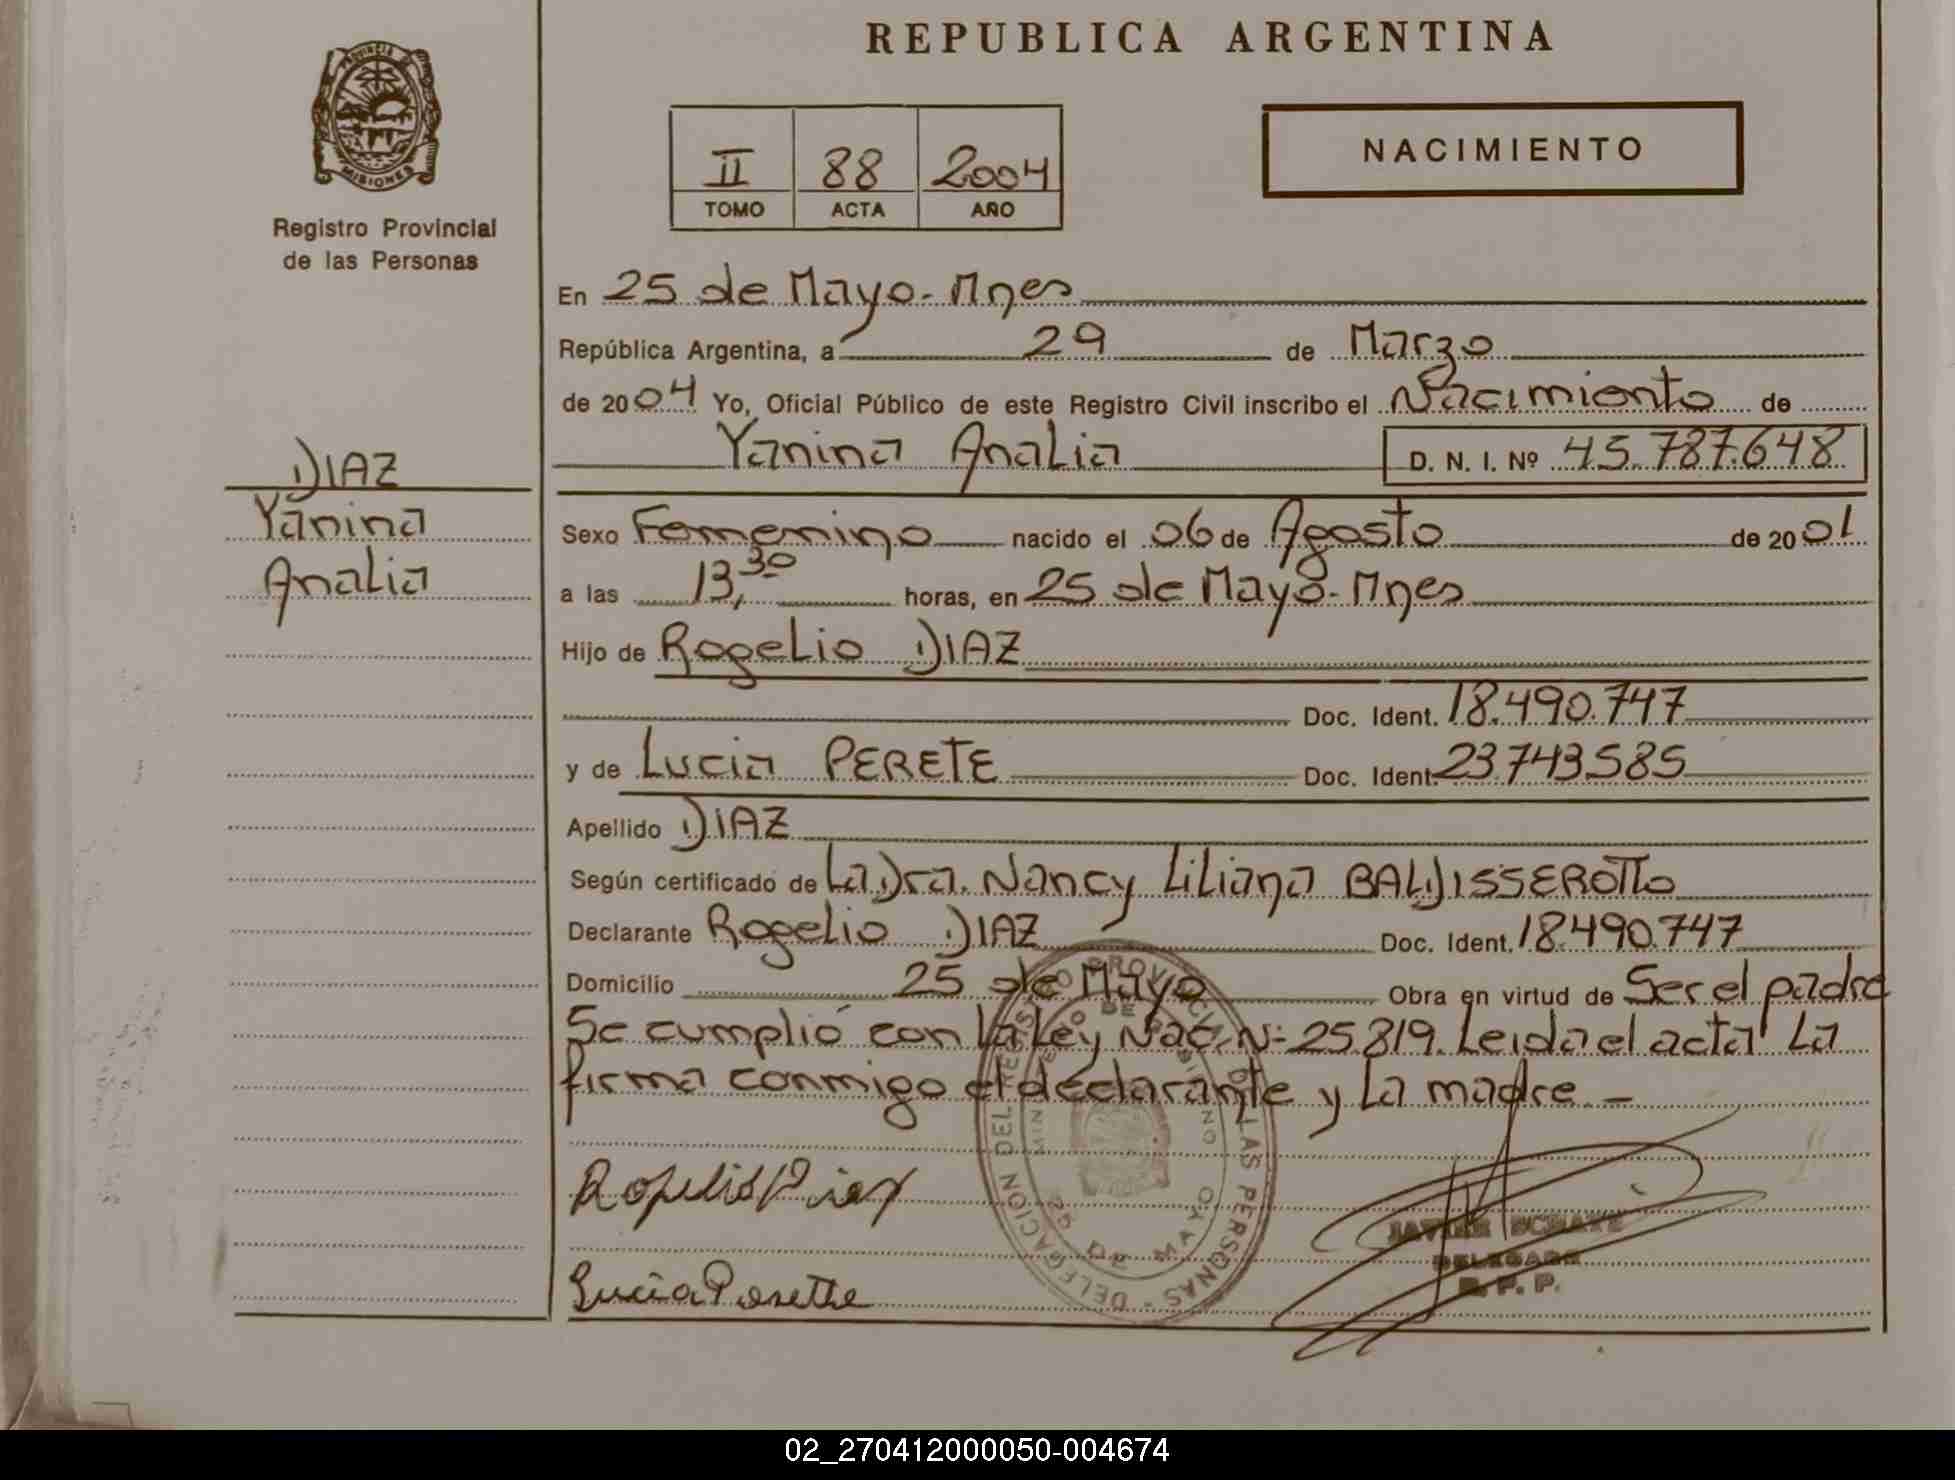 REPUBLICA ARGENTINA
PROVINCIA DE MISIONES
Registro Provincial
de las Personas
II 88 2004
TOMO ACTA AÑO
NACIMIENTO
En 25 de Mayo - Mnes
República Argentina, a 29 de Marzo
de 2004 Yo, Oficial Público de este Registro Civil inscribo el Nacimiento de
Yanina Analia D. N. I. Nº 45.787.648
DIAZ
Yanina
Analia
Sexo Femenino nacido el 06 de Agosto de 2001
a las 13,30 horas, en 25 de Mayo - Mnes
Hijo de Rogelio DIAZ
Doc. Ident. 18.490.747
y de Lucia PERETE Doc. Ident. 23.743.585
Apellido DIAZ
Según certificado de La Dra. Nancy Liliana BALDISSEROTTO
Declarante Rogelio DIAZ Doc. Ident. 18.490.747
Domicilio 25 de Mayo Obra en virtud de Ser el padre
Se cumplió con la Ley Nac. N: 25.819. Leida el acta La
firma conmigo el declarante y La madre. -
DELEGACION DEL REGISTRO PROVINCIAL DE LAS PERSONAS - DELEG
25 DE MAYO
Rogelio Diaz
JAVIER
DELEGADO
R. P. P.
Lucia
02_270412000050-004674